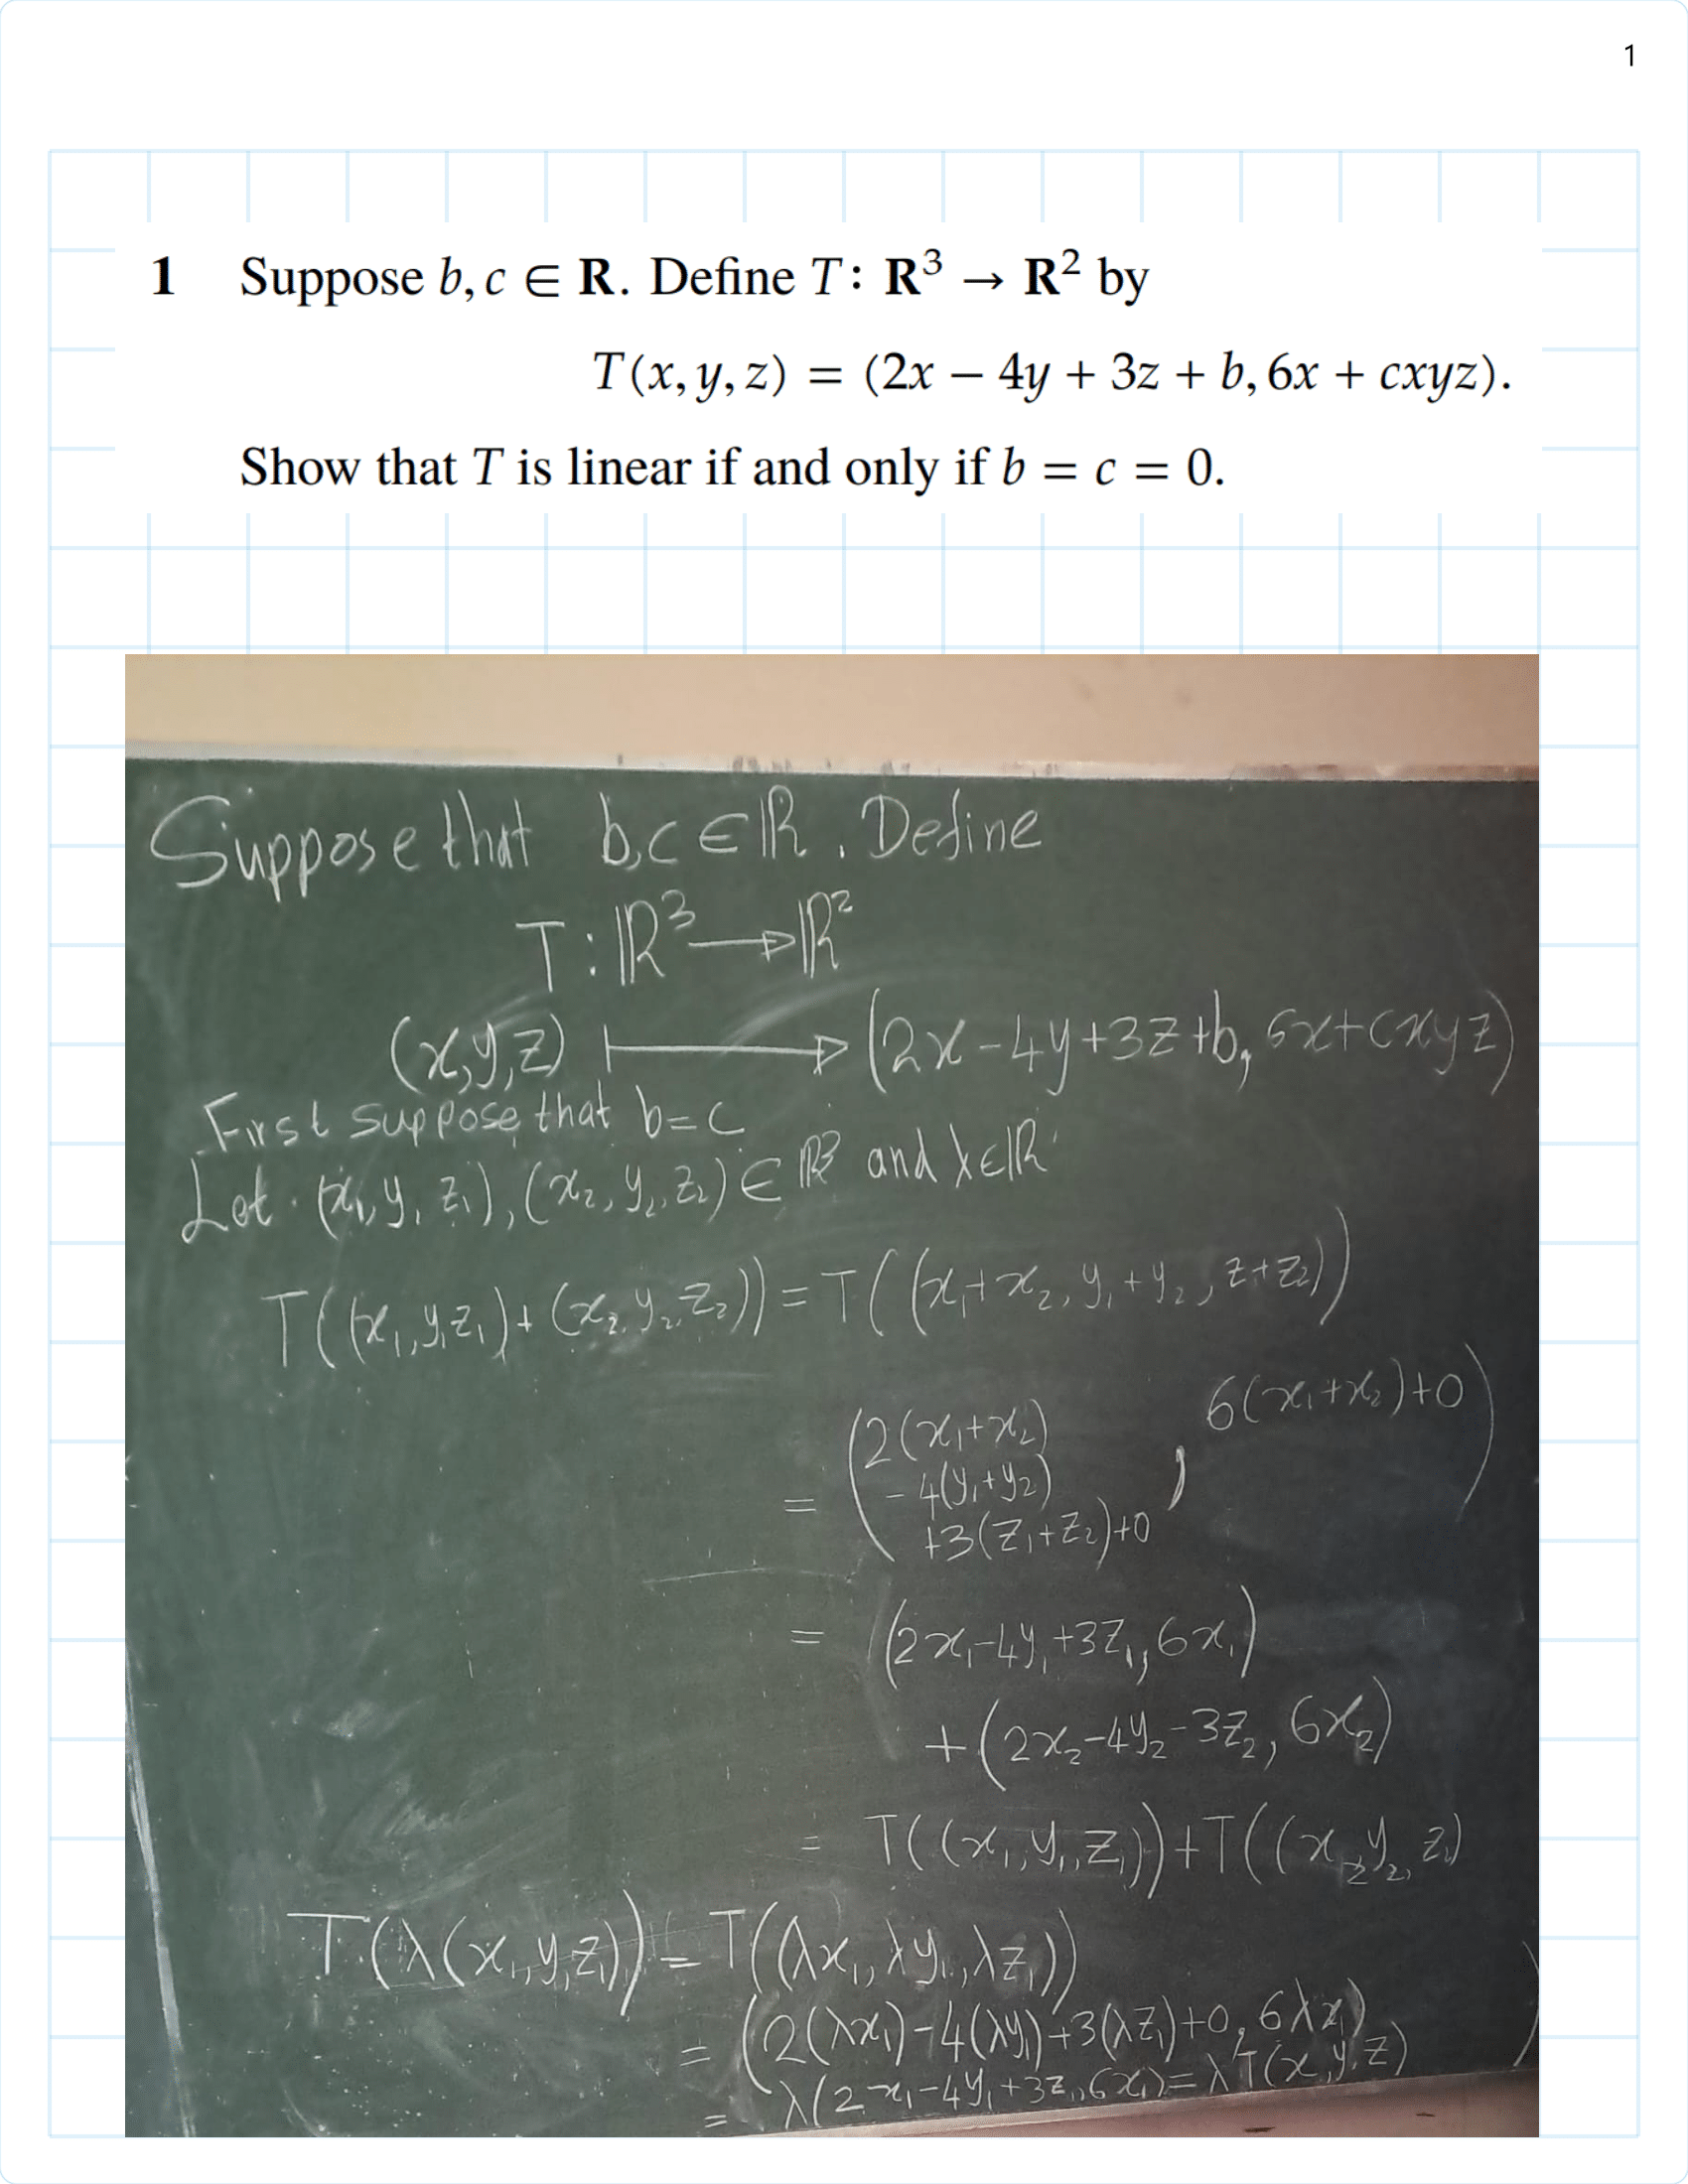 1
1 Suppose b, c ∈ R. Define T : R³ → R² by
T(x, y, z) = (2x − 4y + 3z + b, 6x + cxyz).
Show that T is linear if and only if b = c = 0.
Suppose that b,c ∈ ℝ. Define
T : ℝ³ → ℝ²
(x,y,z) ↦ (2x-4y+3z+b, 6x+cxyz)
First suppose that b=c
Let (x₁,y₁ z₁),(x₂,y₂,z₂) ∈ ℝ³ and λ∈ℝ
T((x₁,y₁z₁)+(x₂,y₂,z₂)) = T((x₁+x₂, y₁+y₂, z+z₂))
= (2(x₁+x₂) , 6(x₁+x₂)+0)
-4(y₁+y₂)
+3(z₁+z₂)+0
= (2x₁-4y₁+3z₁, 6x₁)
+(2x₂-4y₂-3z₂, 6x₂)
= T((x₁,y₁,z₁))+T((x₂,y₂,z₂)
T(λ(x₁,y₁z₁)) = T((λx₁,λy₁,λz₁))
= (2(λx₁)-4(λy₁)+3(λz₁)+0, 6λx₁) )
= λ(2x₁-4y₁+3z₁,6x₁)=λT(x,y,z)